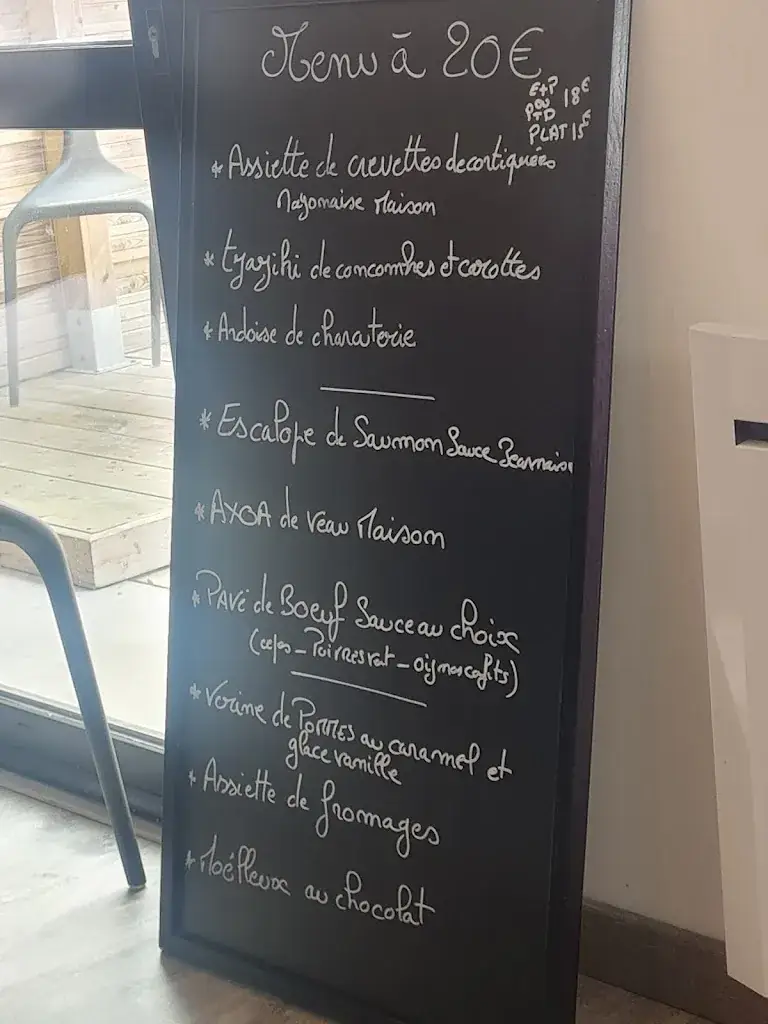 Menu à 20€
E+P
ou 18€
P+D
PLAT 15€
* Assiette de crevettes decortiquées
Mayonaise Maison
* Tzaziki de concombres et carottes
* Ardoise de charcuterie
* Escalope de Saumon Sauce Bearnaise
* AXOA de Veau Maison
* PAVé de Boeuf Sauce au choix
(cepes - Poivre vert - oignons confits)
* Verrine de Pommes au caramel et
glace vanille
* Assiette de fromages
* Moélleux au chocolat